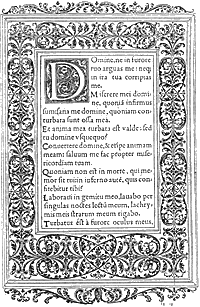 Domine, ne in furore
tuo arguas me: neq;
in ira tua corripias
me.
Miserere mei domi-
ne, quoniã infirmus
sum: sana me domine, quoniam con-
turbata sunt ossa mea.
Et anima mea turbata est valde: sed
tu domine vsquequo?
Conuertere domine, & eripe animam
meam: saluum me fac propter miseri-
cordiam tuam.
Quoniam non est in morte, qui me-
mor sit tui: in inferno autẽ, quis confi-
tebitur tibi?
Laboraui in gemitu meo, lauabo per
singulas noctes lectũ meum, lachry-
mis meis stratum meum rigabo.
Turbatus est à furore oculus meus,